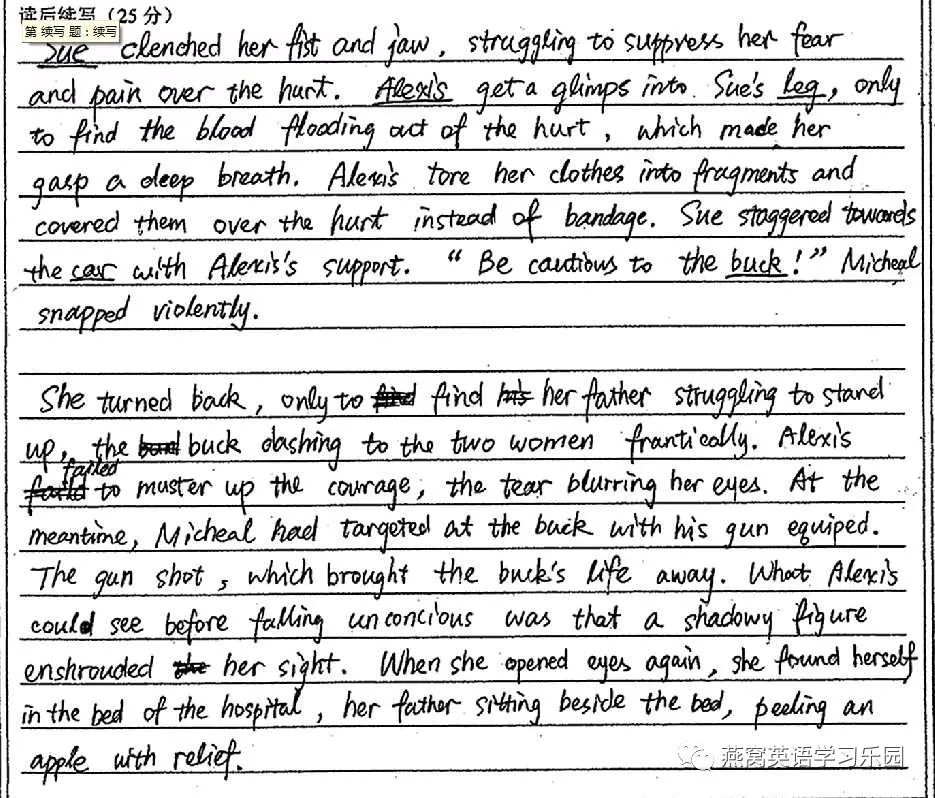 读后续写（25分）
第 续写 题：续写
Sue clenched her fist and jaw, struggling to suppress her fear
and pain over the hurt. Alexis get a glimps into Sue's leg, only
to find the blood flooding out of the hurt, which made her
gasp a deep breath. Alexis tore her clothes into fragments and
covered them over the hurt instead of bandage. Sue staggered towards
the car with Alexis's support. "Be cautious to the buck!" Micheal
snapped violently.
She turned back, only to find her father struggling to stand
up, the buck dashing to the two women frantically. Alexis
failed to muster up the courage, the tear blurring her eyes. At the
meantime, Micheal had targeted at the buck with his gun equiped.
The gun shot, which brought the buck's life away. What Alexis
could see before falling unconcious was that a shadowy figure
enshrouded her sight. When she opened eyes again, she found herself
in the bed of the hospital, her father sitting beside the bed, peeling an
apple with relief.
燕窝英语学习乐园